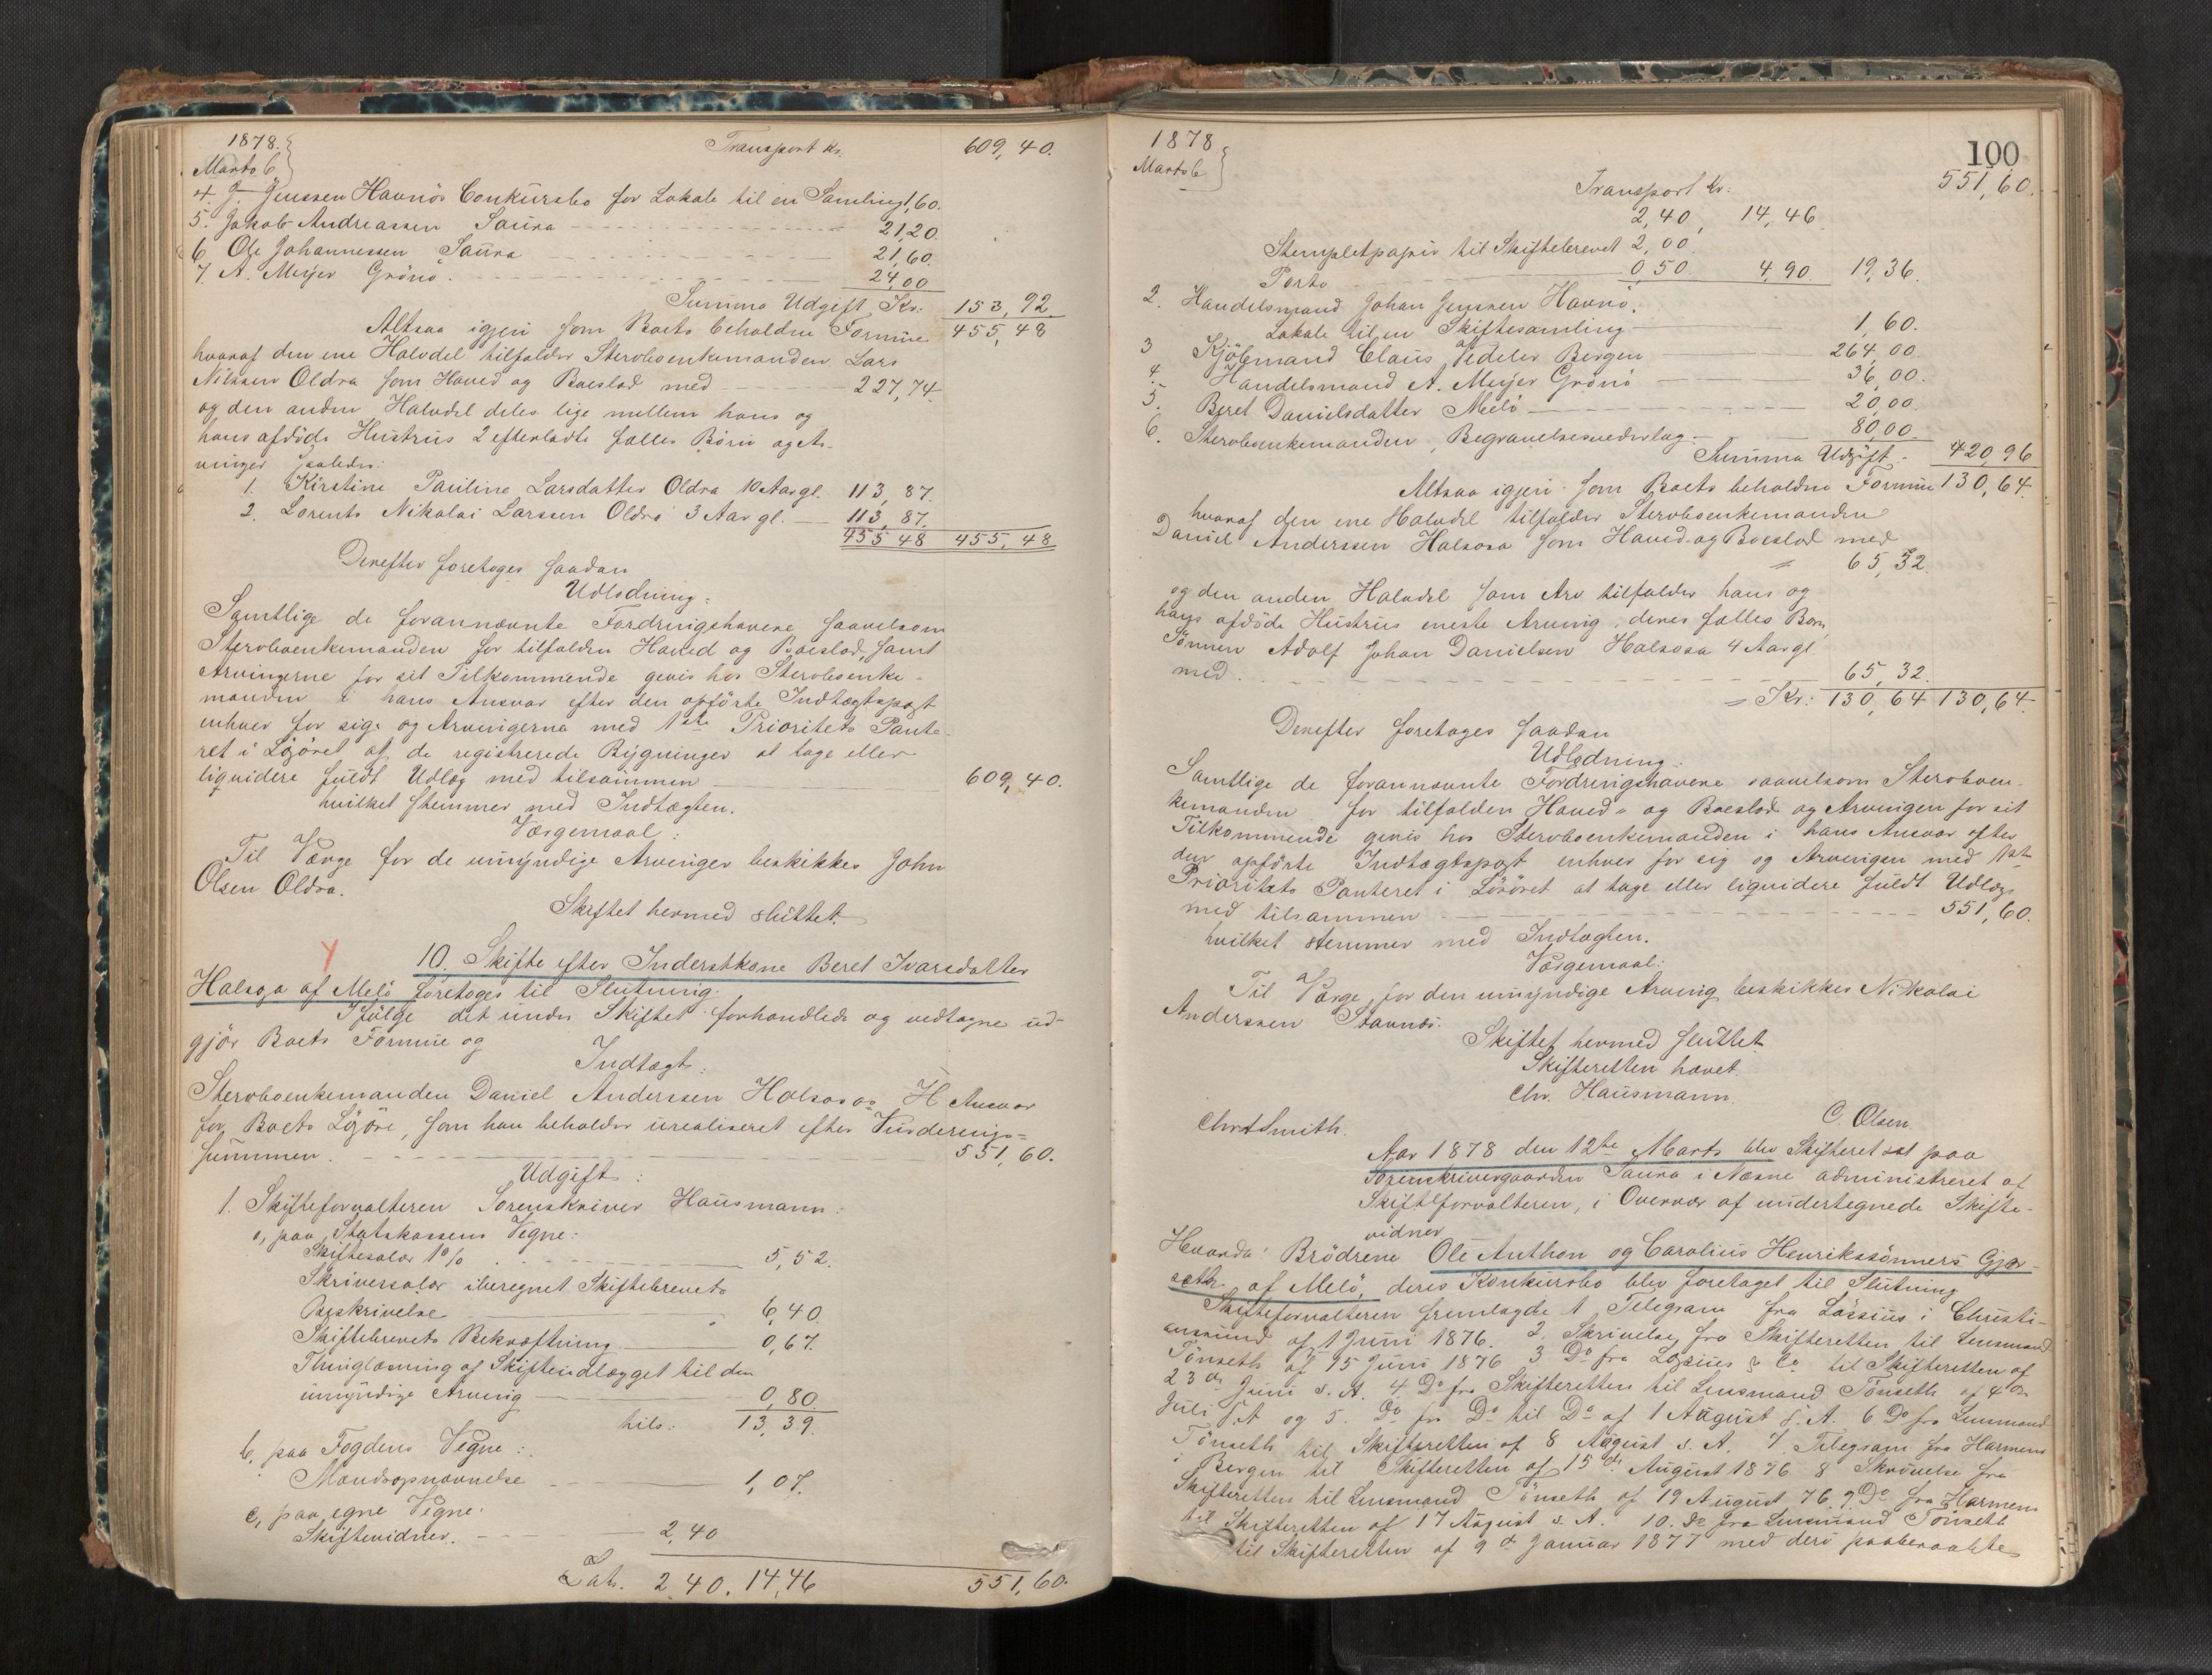 1878.
Marts 6
Transport Kr. 609,40.
4. J. Jenssen Havnös Conkursbo for Lokale til en Samling 1,60.
5. Jakob Andreassen Saura 21,20.
6 Ole Johannessen Saura 21,60.
7. A. Meyer Grönö. 24,00
Summa Udgift Kr: 153,92.
Altsaa igjen som Boets beholdne Formue 455,48
hvoraf den ene Halvdel tilfalder Sterboenkemanden Lars
Nilssen Oldra som Hoved og Boeslod med 227,74
og den anden Halvdel deles lige mellem hans og
hans afdöde Hustrus 2 efterladte fælles Börn og Ar-
vinger saaledes:
1. Kirstine Pauline Larsdatter Oldra 10 Aar gl. 113,87.
2. Lorents Nikolai Larssen Oldra 3 Aar gl. 113,87.
455 48 455,48
Derefter foretoges saadan
Udlodning:
Samtlige de forannævnte Fordringshavere saavelsom
Sterboenkemanden for tilfalden Hoved og Boeslod, samt
Arvingerne for sit Tilkommende gives hos Sterboenke-
manden i hans Ansvar efter den opförte Indtægtspost
enhver for sig og Arvingerne med 1ste Prioritets Pante-
ret i Lösöret af de registrerede Bygninger at tage eller
liquidere fuldt Udlæg med tilsammen 609,40.
hvilket stemmer med Indtægten.
Værgemaal:
Til Værge for de umyndige Arvinger beskikkes John
Olsen Oldra.
Skiftet hermed sluttet.
10. Skifte efter Inderstkone Beret Ivarsdatter
Halsosa af Melö foretoges til Slutning.
Ifölge det under Skiftet forhandlede og vedtagne ud-
gjör Boets Formue og
Indtægt:
Sterboenkemanden Daniel Anderssen Halsosas Ansvar
for Boets Lösöre, som han beholder urealiseret efter Vurderings-
summen. 551,60.
Udgift:
1. Skifteforvalteren Sorenskriver Hausmann:
a, paa Statskassens Vegne:
Skiftesalær 1% 5,52.
Skriversalær iberegnet Skiftebrevets
Beskrivelse 6,40.
Skiftebrevets Bekræftning 0,67.
Thinglæsning af Skifteudlægget til den
umyndige Arving 0,80.
tils: 13,39.
b, paa Fogdens Vegne:
Mandsopnævnelse 1,07.
c, paa egne Vegne:
Skiftevidner. 2,40
Lats. 2,40. 14,46 551,60.
1878
Marts 6
100
Transport Kr: 551,60.
2,40, 14,46
Stempletpapir til Skiftebrevet 2,00.
Porto 0,50 4,90. 19,36.
2. Handelsmand Johan Jenssen Havnö.
Lokale til en Skiftesamling 1,60.
3 Kjöbmand Claus Vedeler Bergen 264,00.
4. Handelsmand A. Meyer Grönö 36,00.
5. Beret Danielsdatter Melö 20,00.
6. Sterboenkemanden, Begravelsesvederlag 80,00
Summa Udgift 420,96
Altsaa igjen som Boets beholdne Formue 130,64.
hvoraf den ene Halvdel tilfalder Sterboenkemanden
Daniel Anderssen Halsosa som Hoved og Boeslod med
65,32.
og den anden Halvdel som Arv tilfalder hans og
hans afdöde Hustrus eneste Arving, deres fælles Barn,
Sönnen Adolf Johan Danielsen Halsosa 4 Aar gl
med. 65,32.
Kr: 130,64 130,64.
Derefter foretoges saadan
Udlodning:
Samtlige de forannævnte Fordringshavere saavelsom Sterboen-
kemanden for tilfalden Hoved- og Boeslod og Arvingen for sit
Tilkommende gives hos Sterboenkemanden i hans Ansvar efter
den opförte Indtægtspost enhver for sig og Arvingen med 1ste
Prioritets Panteret i Lösöret at tage eller liquidere fuldt Udlæg
med tilsammen 551,60.
hvilket stemmer med Indtægten.
Værgemaal:
Til Værge for den umyndige Arving beskikkes Nikolai
Anderssen Stavnæs.
Skiftet hermed sluttet
Skifteretten hævet.
Chr. Hausmann.
Chr A Smith. C. Olsen.
Aar 1878 den 12te Marts blev Skifteret sat paa
Sorenskrivergaarden Saura i Næsne administreret af
Skifteforvalteren, i Overvær af undertegnede Skifte-
vidner
Hvorda: Brödrene Ole Anthon og Carolius Henrikssönners Gjær-
seth af Melö, deres Konkursbo blev foretaget til Slutning
Skifteforvalteren fremlagde 1 Telegram fra Lossius i Christi-
ansund af 1 Juni 1876. 2. Skrivelse fra Skifteretten til Lensmand
Tönseth af 15 Juni 1876 3 Do fra Lossius & Co til Skifteretten af
23de Juni s. A. 4. Do fra Skifteretten til Lensmand Tönseth af 4de
Juli s. A og 5. Do fra Do til Do af 1 August s. A. 6. Do fra Lensmand
Tönseth til Skifteretten af 8 August s. A. 7. Telegram fra Harmens
i Bergen til Skifteretten af 15de August 1876 8 Skrivelse fra
Skifteretten til Lensmand Tönseth af 19 August 76. 9. Do fra Harmens
til Skifteretten af 17 August s. A. 10. Do fra Lensmand Tönseth
til Skifteretten af 9de Januar 1877 med deri paaberaabte